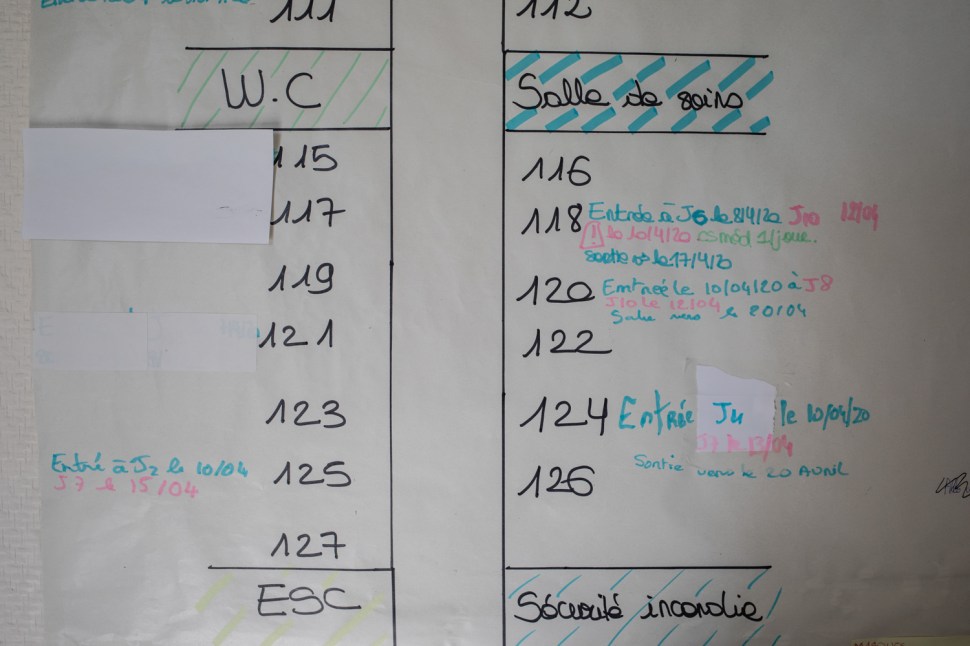 111
112
W.C
Salle de soins
115
116
117
118 Entrée à J6 le 8/4/20 J10 12/04
! le 10/4/20 csméd 1/jour.
sortie le 17/4/20
119
120 Entrée le 10/04/20 à J8
J10 le 12/04
Sortie vers le 20/04
121
122
123
124 Entrée J4 le 10/04/20
J7 le 13/04
Sortie vers le 20 AVRIL
Entré à J2 le 10/04 125
J7 le 15/04
126
127
ESC
Sécurité incendie